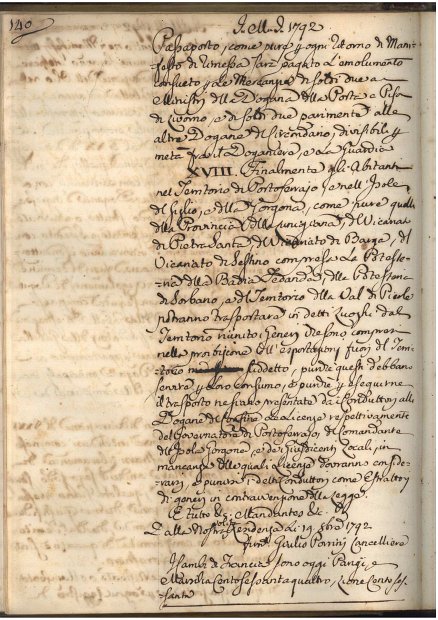 140
A. M. D. 1792
Passaporto, come pure p. ogni ritorno di Mani=
festo di rimessa sarà pagato l'emolumento
consueto p. le Mercanzie di soldi due a
Ministri della Dogana della Porta a Pisa
di Livorno, e di soldi due parimente alle
altre Dogane del Circondario, divisibili p.
metà fra il Doganiere, e la Guardia
XVIII. Finalmente gli Abitanti
nel Territorio di Portoferrajo e nell' Isole
del Giglio, e della Gorgona, come pure quelli
della Provincia della Lunigiana, del Vicariato
di Pietrasanta, del Vicariato di Barga, del
Vicariato di Sestino compresa la Potes=
ria della Badia Tedalda, della Potesteria
di Sorbano, e del Territorio della Val di
potranno trasportare in detti Luoghi dal
Territorio riunito i Generi che sono compresi
nella proibizione dell' esportazione fuori del Terri=
torio suddetto, purchè questi debbano
servire p. loro consumo, e purchè p. eseguirne
il trasporto ne siano presentate dai Conduttori alle
Dogane di confine le Licenze respettivamente
del Governatore di Portoferrajo, del Comandante
dell' Isola Gorgona, e dei Giusdicenti Locali, in
mancanza delle quali Licenze dovranno conside=
rarsi, e punirsi i detti Conduttori come Estrattori
di generi in contravvenzione alla Legge.
E tutto &c. Mandantes &c.
E alla Nostra Residenza li 19 9bre 1792.
firm. Giulio Parrini Cancelliere
I cambi di Francia sono oggi Parigi, e
Marsilia Centosessantaquattro, Lione Centoses=
santa